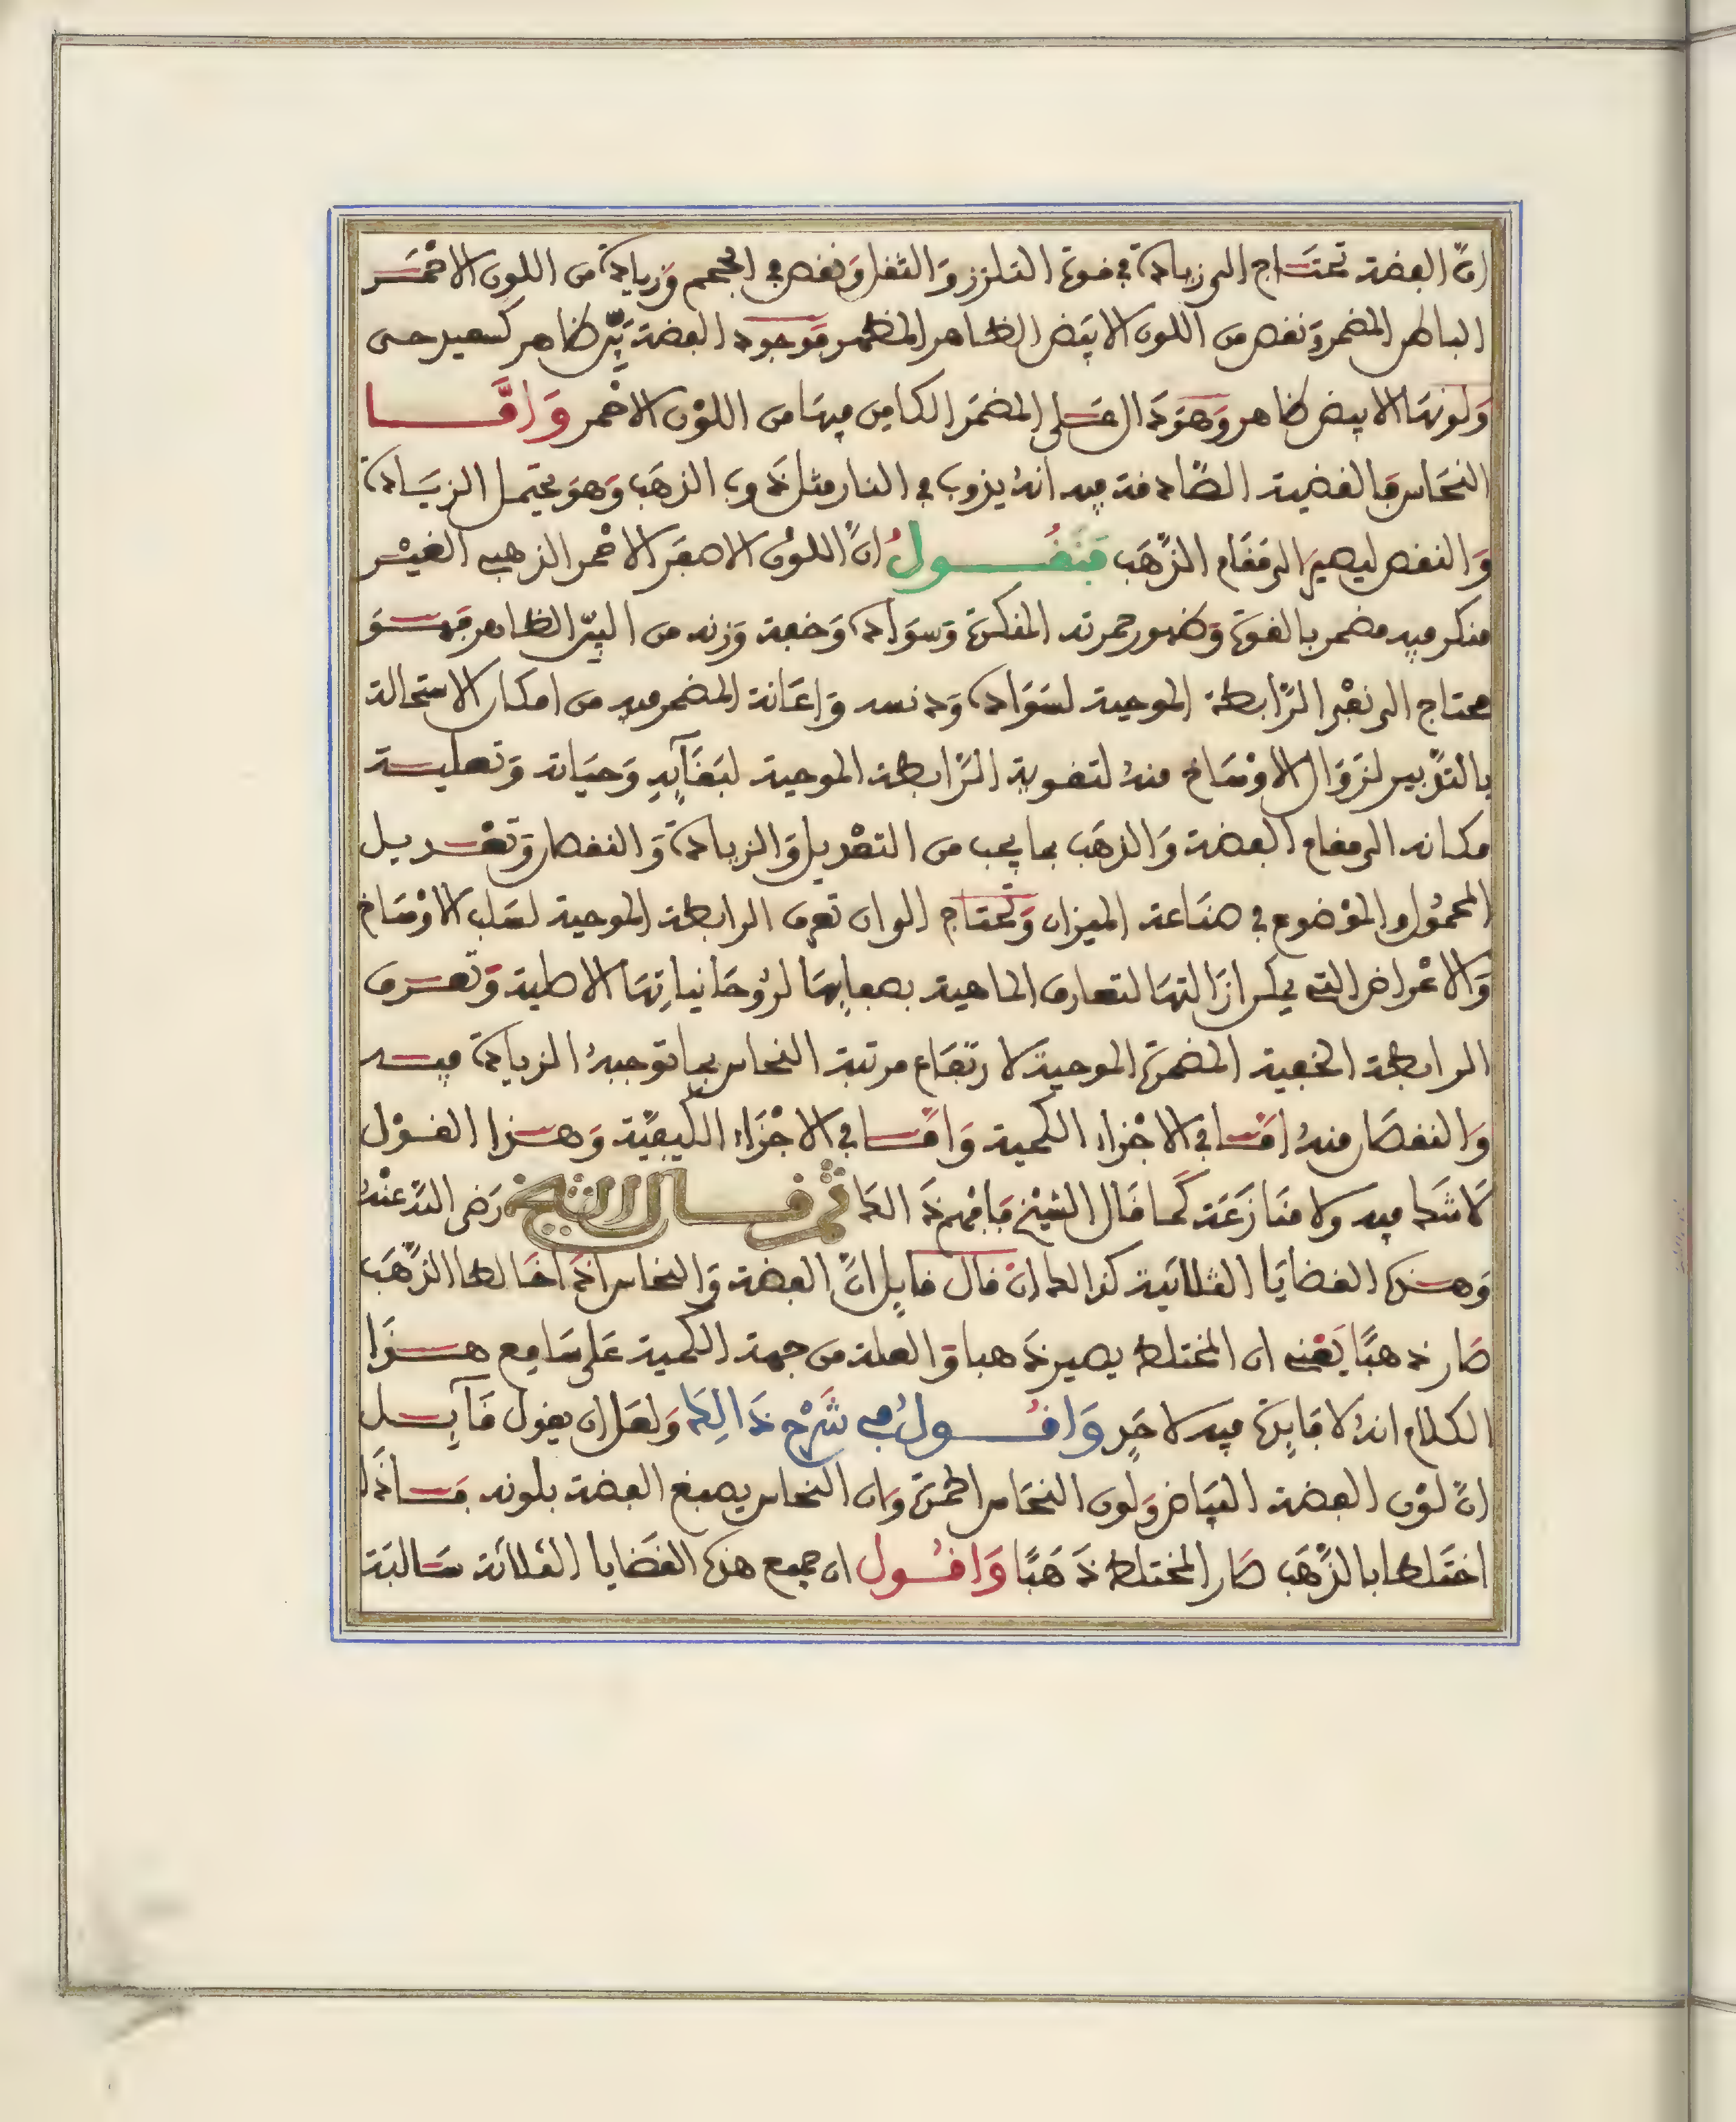 انّ الفضة تحتاج الى زيادة في قوة التلزز والثقل ونقص في الحجم وزيادة من اللون الاحمر
الباطن المضمر ونقص من اللون الابيض الظاهر المظهر فوجود الفضة بيّن ظاهر كسعيد حي
ولونها الابيض ظاهر وهو دال على المضمر الكامن فيها من اللون الاحمر وامّا
النحاس فالقضية الصّادقة فيه انه يذوب في النار مثل ذوب الذهب وهو يحتمل الزيادة
والنقص ليصير الى مقام الذّهب فنقول انّ اللون الاصفر الاحمر الذهبي الغير
منكر فيه مضمر بالقوة وظهور حمرته المنكرة وسواده وخفة وزنه من البيّن الظاهر فهو
محتاج الى نفي الرّابطة الموجبة لسواده ودنسه واعانة المضمر فيه من امكان الاستحالة
بالتدبير لزوال الاوساخ منه لتقوية الرّابطة الموجبة لبقآيه وحياته وتعلية
مكانه الى مقام الفضة والذهب بما يجب من التعديل والزيادة والنقصان وتعديل
المحمول والموضوع في صناعة الميزان وتحتاج الى ان تعرف الرابطة الموجبة لسلب الاوساخ
والاعراض التي يمكن ازالتها لتعارف الماهية بصفايها لروحانياتها الاصلية وتعرف
الرابطة الخفية المضمرة الموجبة لارتفاع مرتبة النحاس بما توجبه الزيادة فيه
والنقصان منه امّا في الاجزاء الكمية وامّا في الاجزاء الكيفيّة وهذا القول
لا شك فيه ولا منازعة كما قال الشيخ فافهم ذالك ثم قال الشيخ رضي الله عنه
وهذه القضايا الثلاثية كذالك ان قال قايل انّ الفضة والنحاس اذا خالطا الذّهب
صار ذهبًا يعني ان المختلط يصير ذهبا والعلة من جهة الكمية على سامع هذا
الكلام انه لا فايدة فيه لاحد واقول في شرح ذالك ولعل ان يقول قآيل
انّ لون الفضة البياض ولون النحاس الحمرة وان النحاس يصبغ الفضة بلونه فاذا
اختلطا بالذّهب صار المختلط ذهبًا واقول ان جميع هذه القضايا الثلاثة سالبة